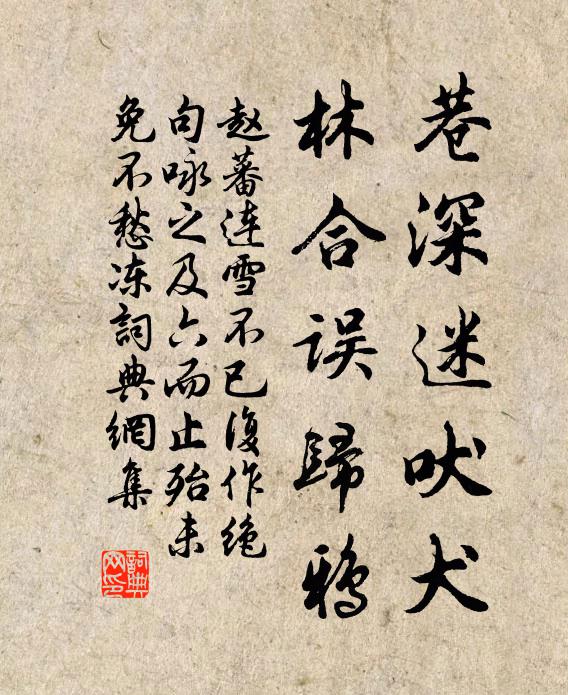 巷深迷吠犬
林合误歸鴉
赵蕃连雪不已復作绝
句咏之及六而止殆未
免不愁冻詞典網集
詞典网印